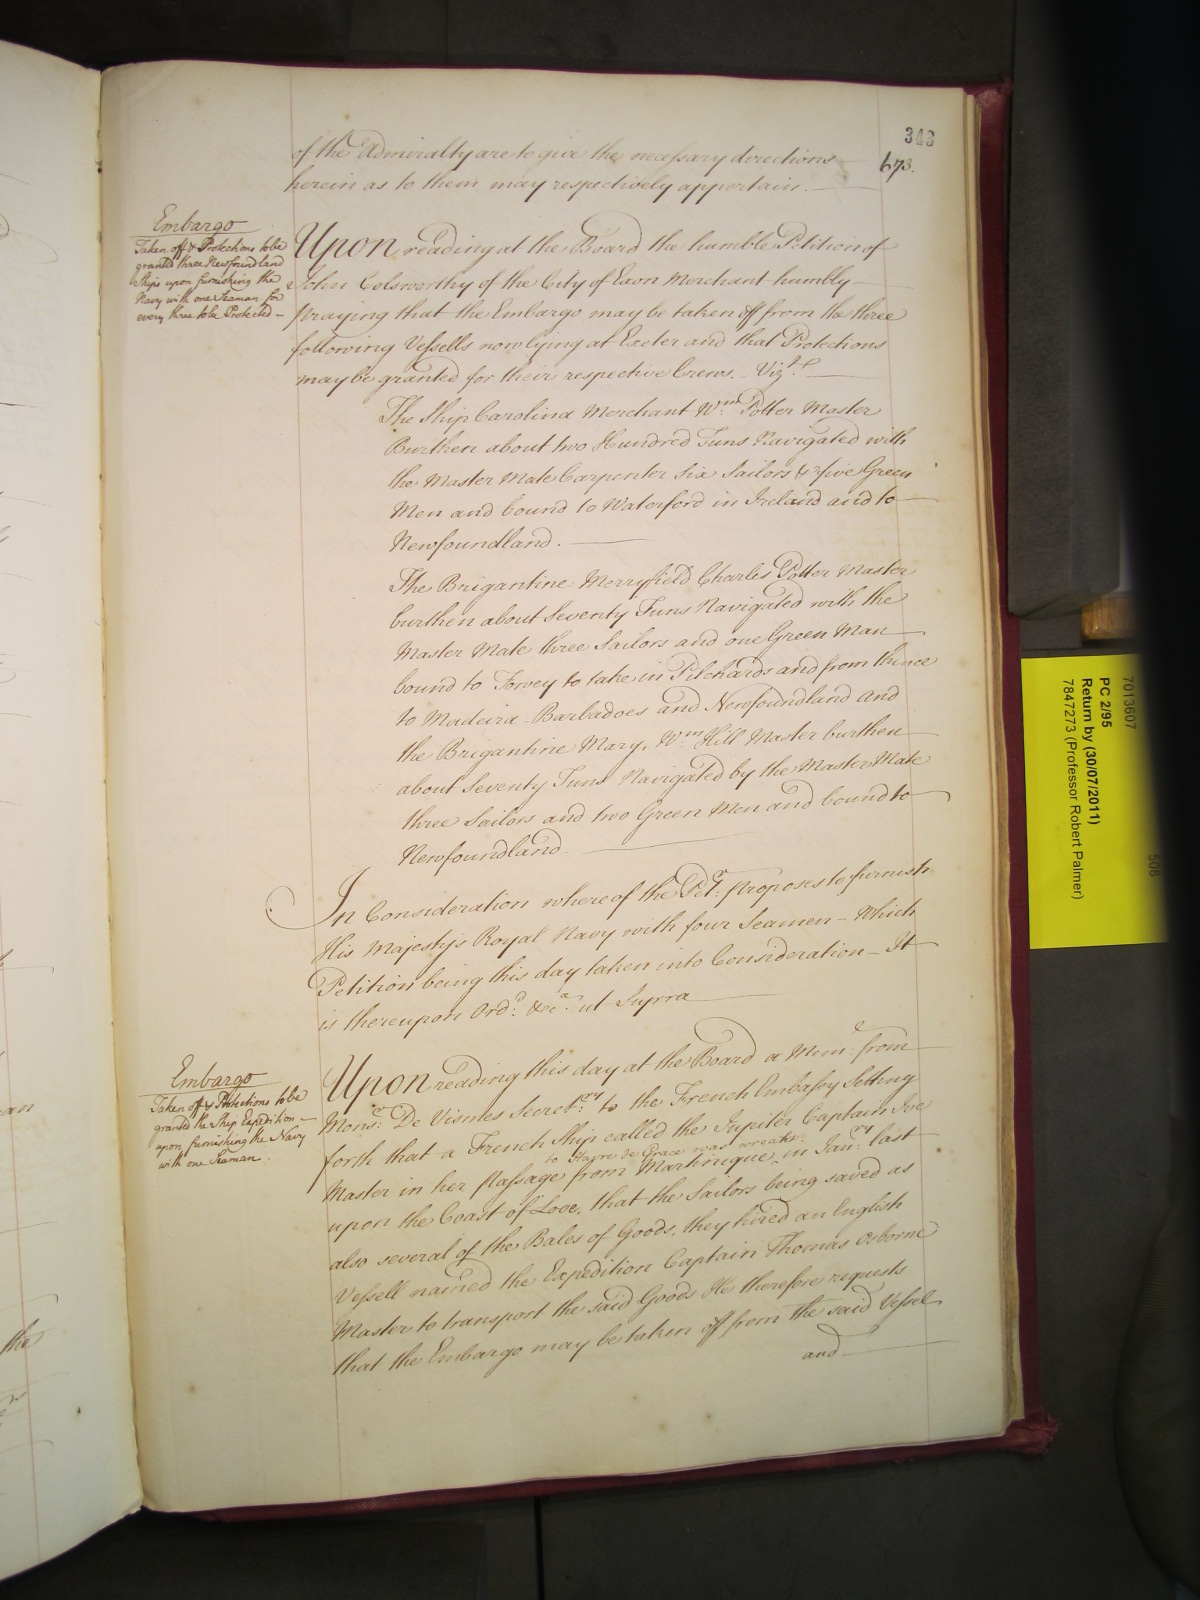 343
673.
of the Admiralty are to give the necessary directions
herein as to them may respectively appertain.
Embargo
Taken off & Protections to be
granted three Newfoundland
Ships upon furnishing the
Navy with one Seaman for
every three to be Protected —
Upon reading at the Board the humble Petition of
John Colsworthy of the City of Exon Merchant humbly
praying that the Embargo may be taken off from the three
following Vessells now lying at Exeter and that Protections
may be granted for their respective Crews. Vizt.
The Ship Carolina Merchant Wm. Potter Master
Burthen about two Hundred Tuns Navigated with
the Master Mate Carpenter Six Sailors & five Green
Men and bound to Waterford in Ireland and to
Newfoundland.
The Brigantine Merryfield Charles Potter Master
burthen about Seventy Tuns Navigated with the
Master Mate three Sailors and one Green Man
bound to Fowey to take in Pilchards and from thence
to Madeira Barbadoes and Newfoundland and
the Brigantine Mary, Wm. Hill Master burthen
about Seventy Tuns Navigated by the Master Mate
three Sailors and two Green Men and bound to
Newfoundland.
In Consideration whereof the Petr. proposes to furnish
His Majesty's Royal Navy with four Seamen — Which
Petition being this day taken into Consideration — It
is thereupon Ord'd: &ca. ut Supra
Embargo
Taken off & Protections to be
granted the Ship Expedition —
upon furnishing the Navy
with one Seaman.
Upon reading this day at the Board a Meml. from
Monsr. De Vismes Secretry. to the French Embassy Setting
forth that a French Ship called the Jupiter Captain Ive
to Havre de Grace was wreckt
Master in her passage from Martinique in Janry. last
upon the Coast of Looe, that the Sailors being saved as
also several of the Bales of Goods, they hired an English
Vessell named the Expedition Captain Thomas Osborne
Master to transport the said Goods He therefore requests
that the Embargo may be taken off from the said Vessel
and
7013607
PC 2/95
Return by (30/07/2011)
7847273 (Professor Robert Palmer)
508
an
the